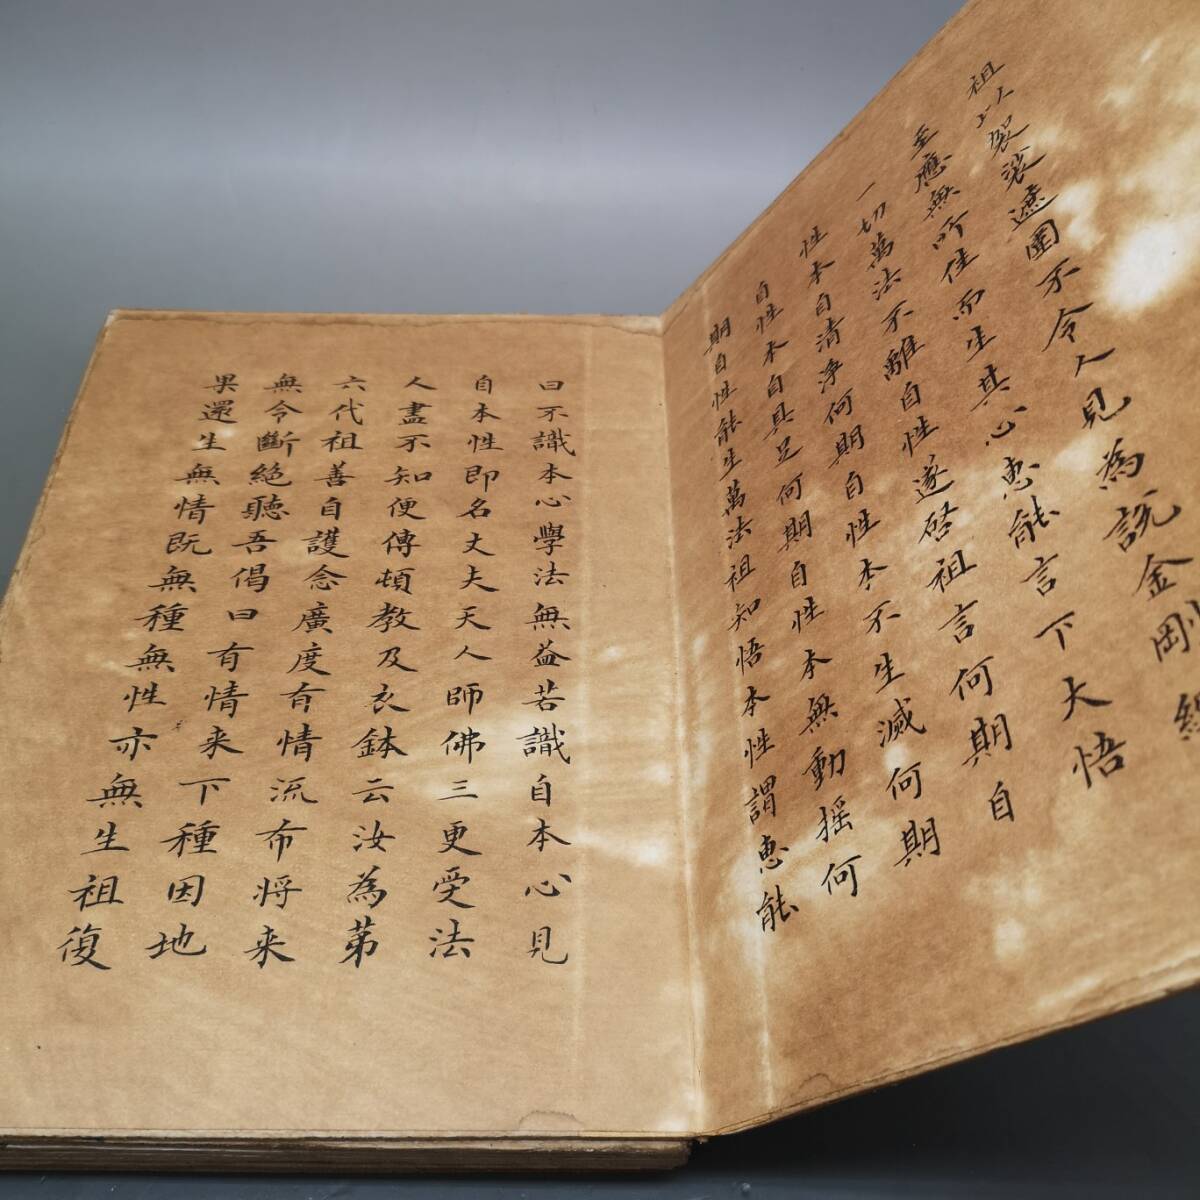 祖以袈裟遮圍不令人見為説金剛經
至應無所住而生其心惠能言下大悟
一切萬法不離自性遂啓祖言何期自
性本自清淨何期自性本不生滅何期
自性本自具足何期自性本無動搖何
期自性能生萬法祖知悟本性謂惠能
曰不識本心學法無益若識自本心見
自本性即名丈夫天人師佛三更受法
人盡不知便傳頓教及衣鉢云汝為第
六代祖善自護念廣度有情流布将来
無令斷絕聽吾偈曰有情来下種因地
果還生無情既無種無性亦無生祖復